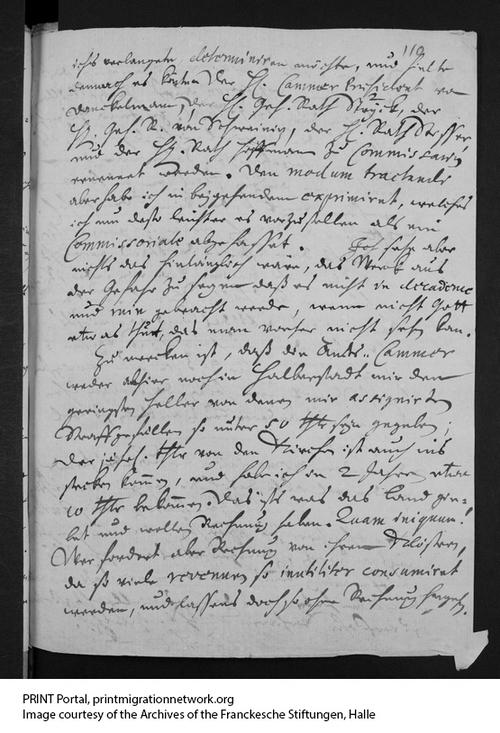 119
ichs verlangete determiniren möchte, und hielte
demnach es könten der H. Cammer Præsident von
Danckelmann, der H. Geh. Rath Stryck, der
H. Geh. R. von Schweinitz, der H. Rath Stisser,
und der H. Rath Hoffmann zu Commissariis
ernennet werden. Den modum tractandi
aber habe ich in beigehendem exprimiret, welches
ich nun desto leichter es vorzustellen als ein
Commissoriale abgefasset. Ich sehe aber
nichts das hinlänglich wäre, das Werck aus
der Gefahr zu setzen daß es nicht in decadence
und ruin gebracht werde, wenn nicht Gott
etwas thut, das man vorher nicht sehen kan.
Zu mercken ist, daß den Ambts-Cammer
weder alhier noch in Halberstadt mir den
geringsten Heller von denen mir assignirten
Straffgefällen so unter 50 thlr seyn gegeben;
der thlr von den Kirchen ist auch ins
stecken kommen, und habe ich in 2 Jahren etwa
10 thlr bekommen. Das ists was das Land
und wollen Rechnung haben. Quam iniquum!
Wer fordert aber Rechnung von ihren Klöstern,
da so viele revenuen so inutiliter consumiret
werden, und lassens doch so ohne Rechnung
PRINT Portal, printmigrationnetwork.org
Image courtesy of the Archives of the Franckesche Stiftungen, Halle